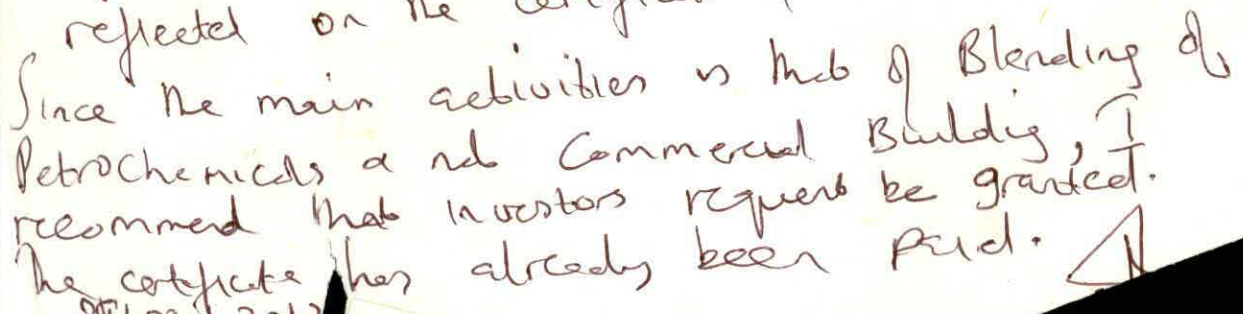 reflected on the
Since the main activities is that of Blending of
Petrochemicals & not Commercial Building, I
recommend that investors request be granted.
The certificate has already been paid.